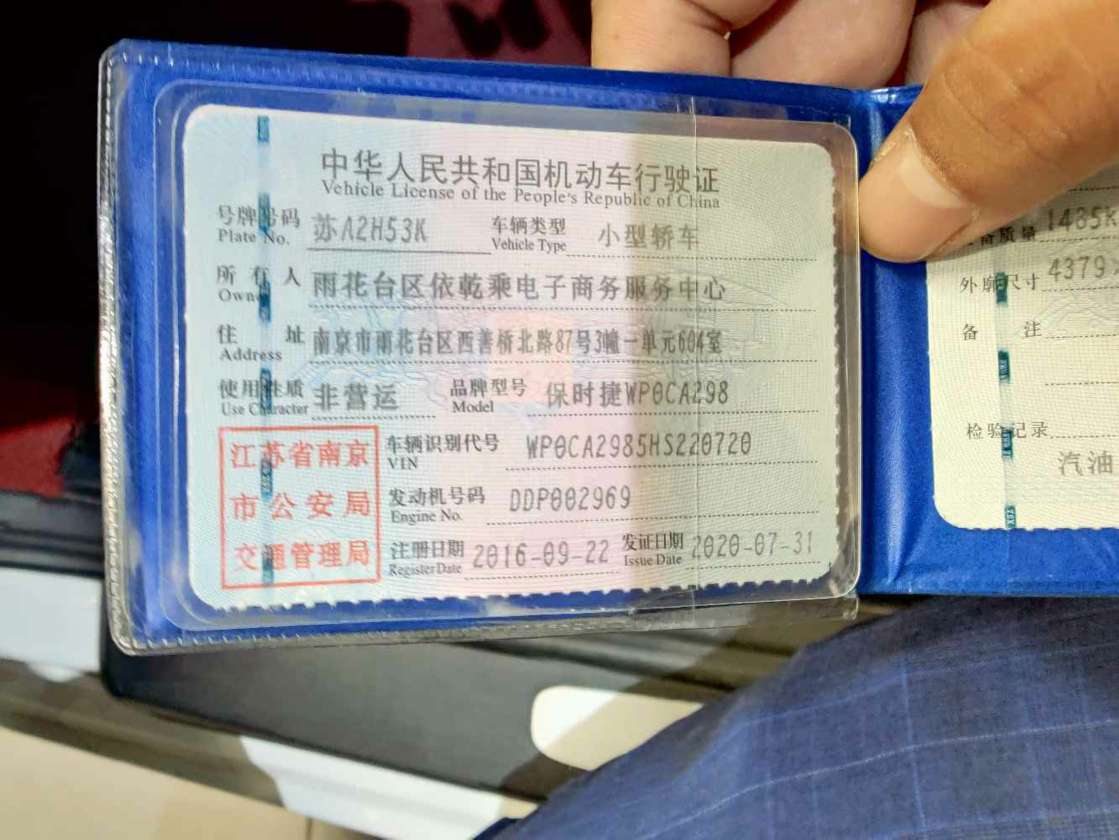 中华人民共和国机动车行驶证
Vehicle License of the People's Republic of China
号牌号码 苏A2H53K 车辆类型 小型轿车
Plate No. Vehicle Type
所有人 雨花台区依乾乘电子商务服务中心
Owner
住址 南京市雨花台区西善桥北路87号3幢一单元604室
Address
使用性质 非营运 品牌型号 保时捷WP0CA298
Use Character Model
江苏省南京
市公安局
交通管理局
车辆识别代号 WP0CA2985HS220720
VIN
发动机号码 DDP002969
Engine No.
注册日期 2016-09-22 发证日期 2020-07-31
Register Date Issue Date
质量 1435
外廓尺寸 4379
备注
检验记录
汽油